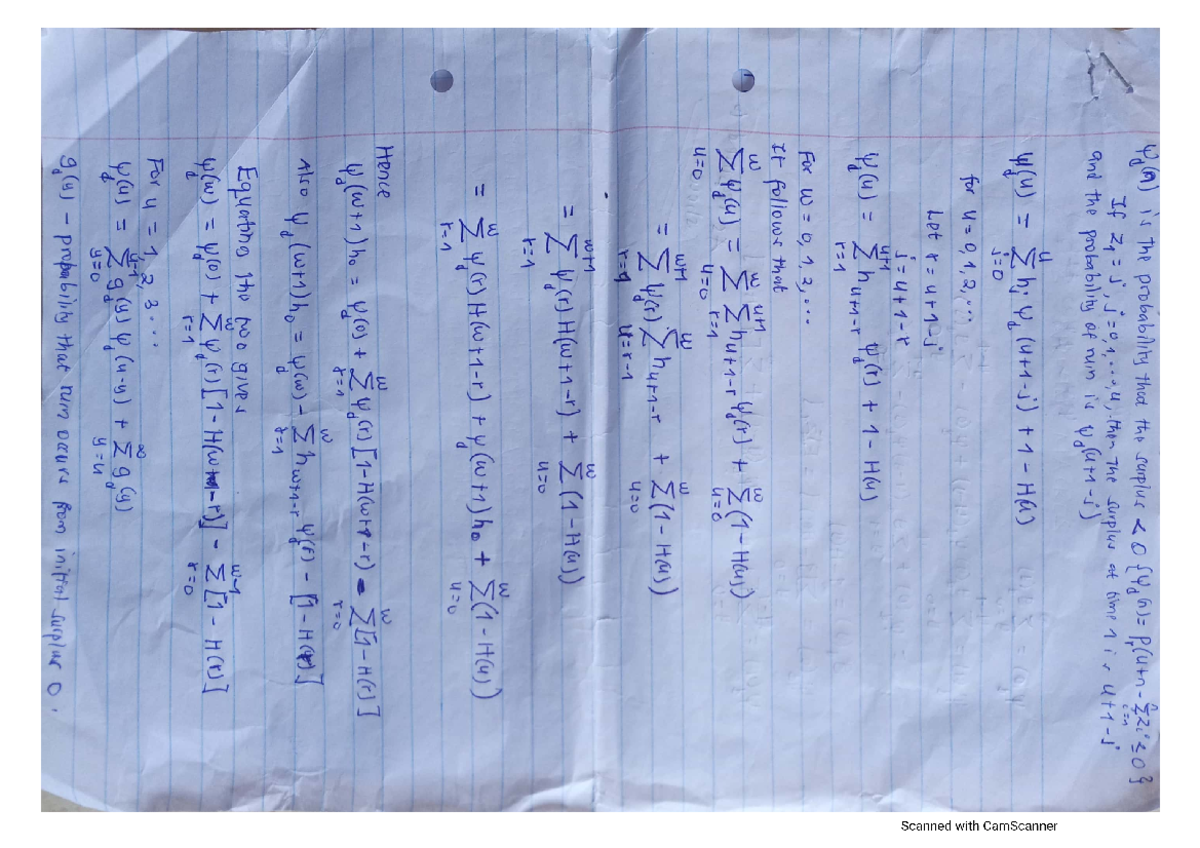 ψ_d(n) is the probability that the surplus < 0 {ψ_d(n) = Pr(u+n - Σ_{i=1}^{n} Zi ≤ 0}
If Z1 = j, j = 0,1,...,u, then the surplus at time 1 is u+1-j
and the probability of ruin is ψ_d(u+1-j)
ψ_d(u) = Σ_{j=0}^{u} hj ψ_d(u+1-j) + 1 - H(u)
for u = 0,1,2,...
Let r = u+1-j
j = u+1-r
ψ_d(u) = Σ_{r=1}^{u+1} h_{u+1-r} ψ_d(r) + 1 - H(u)
For w = 0,1,2,...
It follows that
Σ_{u=0}^{w} ψ_d(u) = Σ_{u=0}^{w} Σ_{r=1}^{u+1} h_{u+1-r} ψ_d(r) + Σ_{u=0}^{w} (1 - H(u))
= Σ_{r=1}^{w+1} ψ_d(r) Σ_{u=r-1}^{w} h_{u+1-r} + Σ_{u=0}^{w} (1 - H(u))
= Σ_{r=1}^{w+1} ψ_d(r) H(w+1-r) + Σ_{u=0}^{w} (1 - H(u))
= Σ_{r=1}^{w} ψ_d(r) H(w+1-r) + ψ_d(w+1) h0 + Σ_{u=0}^{w} (1 - H(u))
Hence
ψ_d(w+1) h0 = ψ_d(0) + Σ_{r=1}^{w} ψ_d(r) [1 - H(w+1-r) - Σ_{r=0}^{w} [1 - H(r)]
Also ψ_d(w+1) h0 = ψ_d(w) - Σ_{r=1}^{w} h_{w+1-r} ψ_d(r) - [1 - H(r)]
Equating the two gives
ψ_d(w) = ψ_d(0) + Σ_{r=1}^{w} ψ_d(r) [1 - H(w-r)] - Σ_{r=0}^{w-1} [1 - H(r)]
For u = 1, 2, 3...
ψ_d(u) = Σ_{y=0}^{u-1} g_d(y) ψ_d(u-y) + Σ_{y=u}^{∞} g_d(y)
g_d(y) - probability that ruin occurs from initial surplus 0,
Scanned with CamScanner